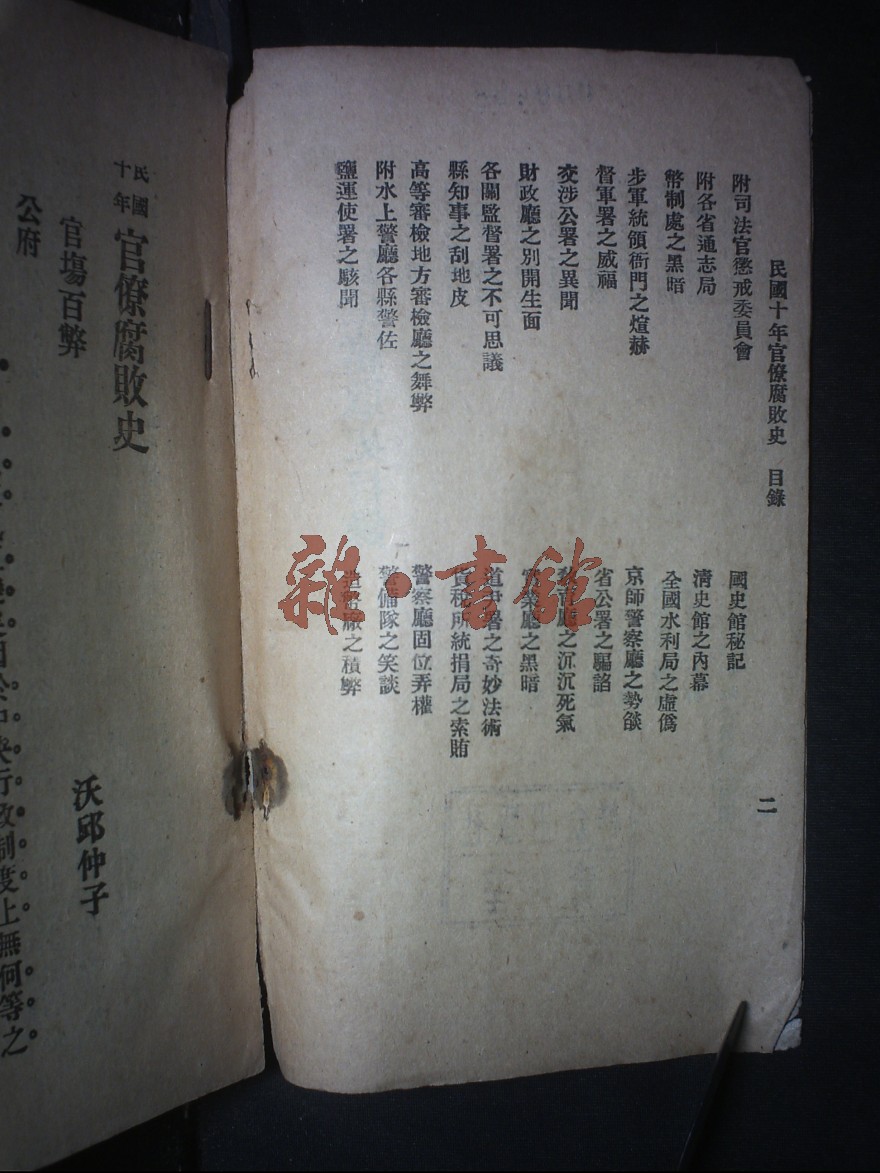 民國十年官僚腐敗史　目錄
二
附司法官懲戒委員會
國史館秘記
附各省通志局
清史館之內幕
幣制處之黑暗
全國水利局之虛僞
步軍統領衙門之煊赫
京師警察廳之勢燄
督軍署之威福
省公署之驅諂
交涉公署之異聞
教育廳之沉沉死氣
財政廳之別開生面
實業廳之黑暗
各關監督署之不可思議
道尹署之奇妙法術
縣知事之刮地皮
貨稅所統捐局之索賄
高等審檢地方審檢廳之舞弊
警察廳固位弄權
附水上警廳各縣警佐
警備隊之笑談
鹽運使署之駭聞
造幣廠之積弊
雜·書館
民國十年
官僚腐敗史
官塲百弊
沃邱仲子
公府
行政制度上無何等之